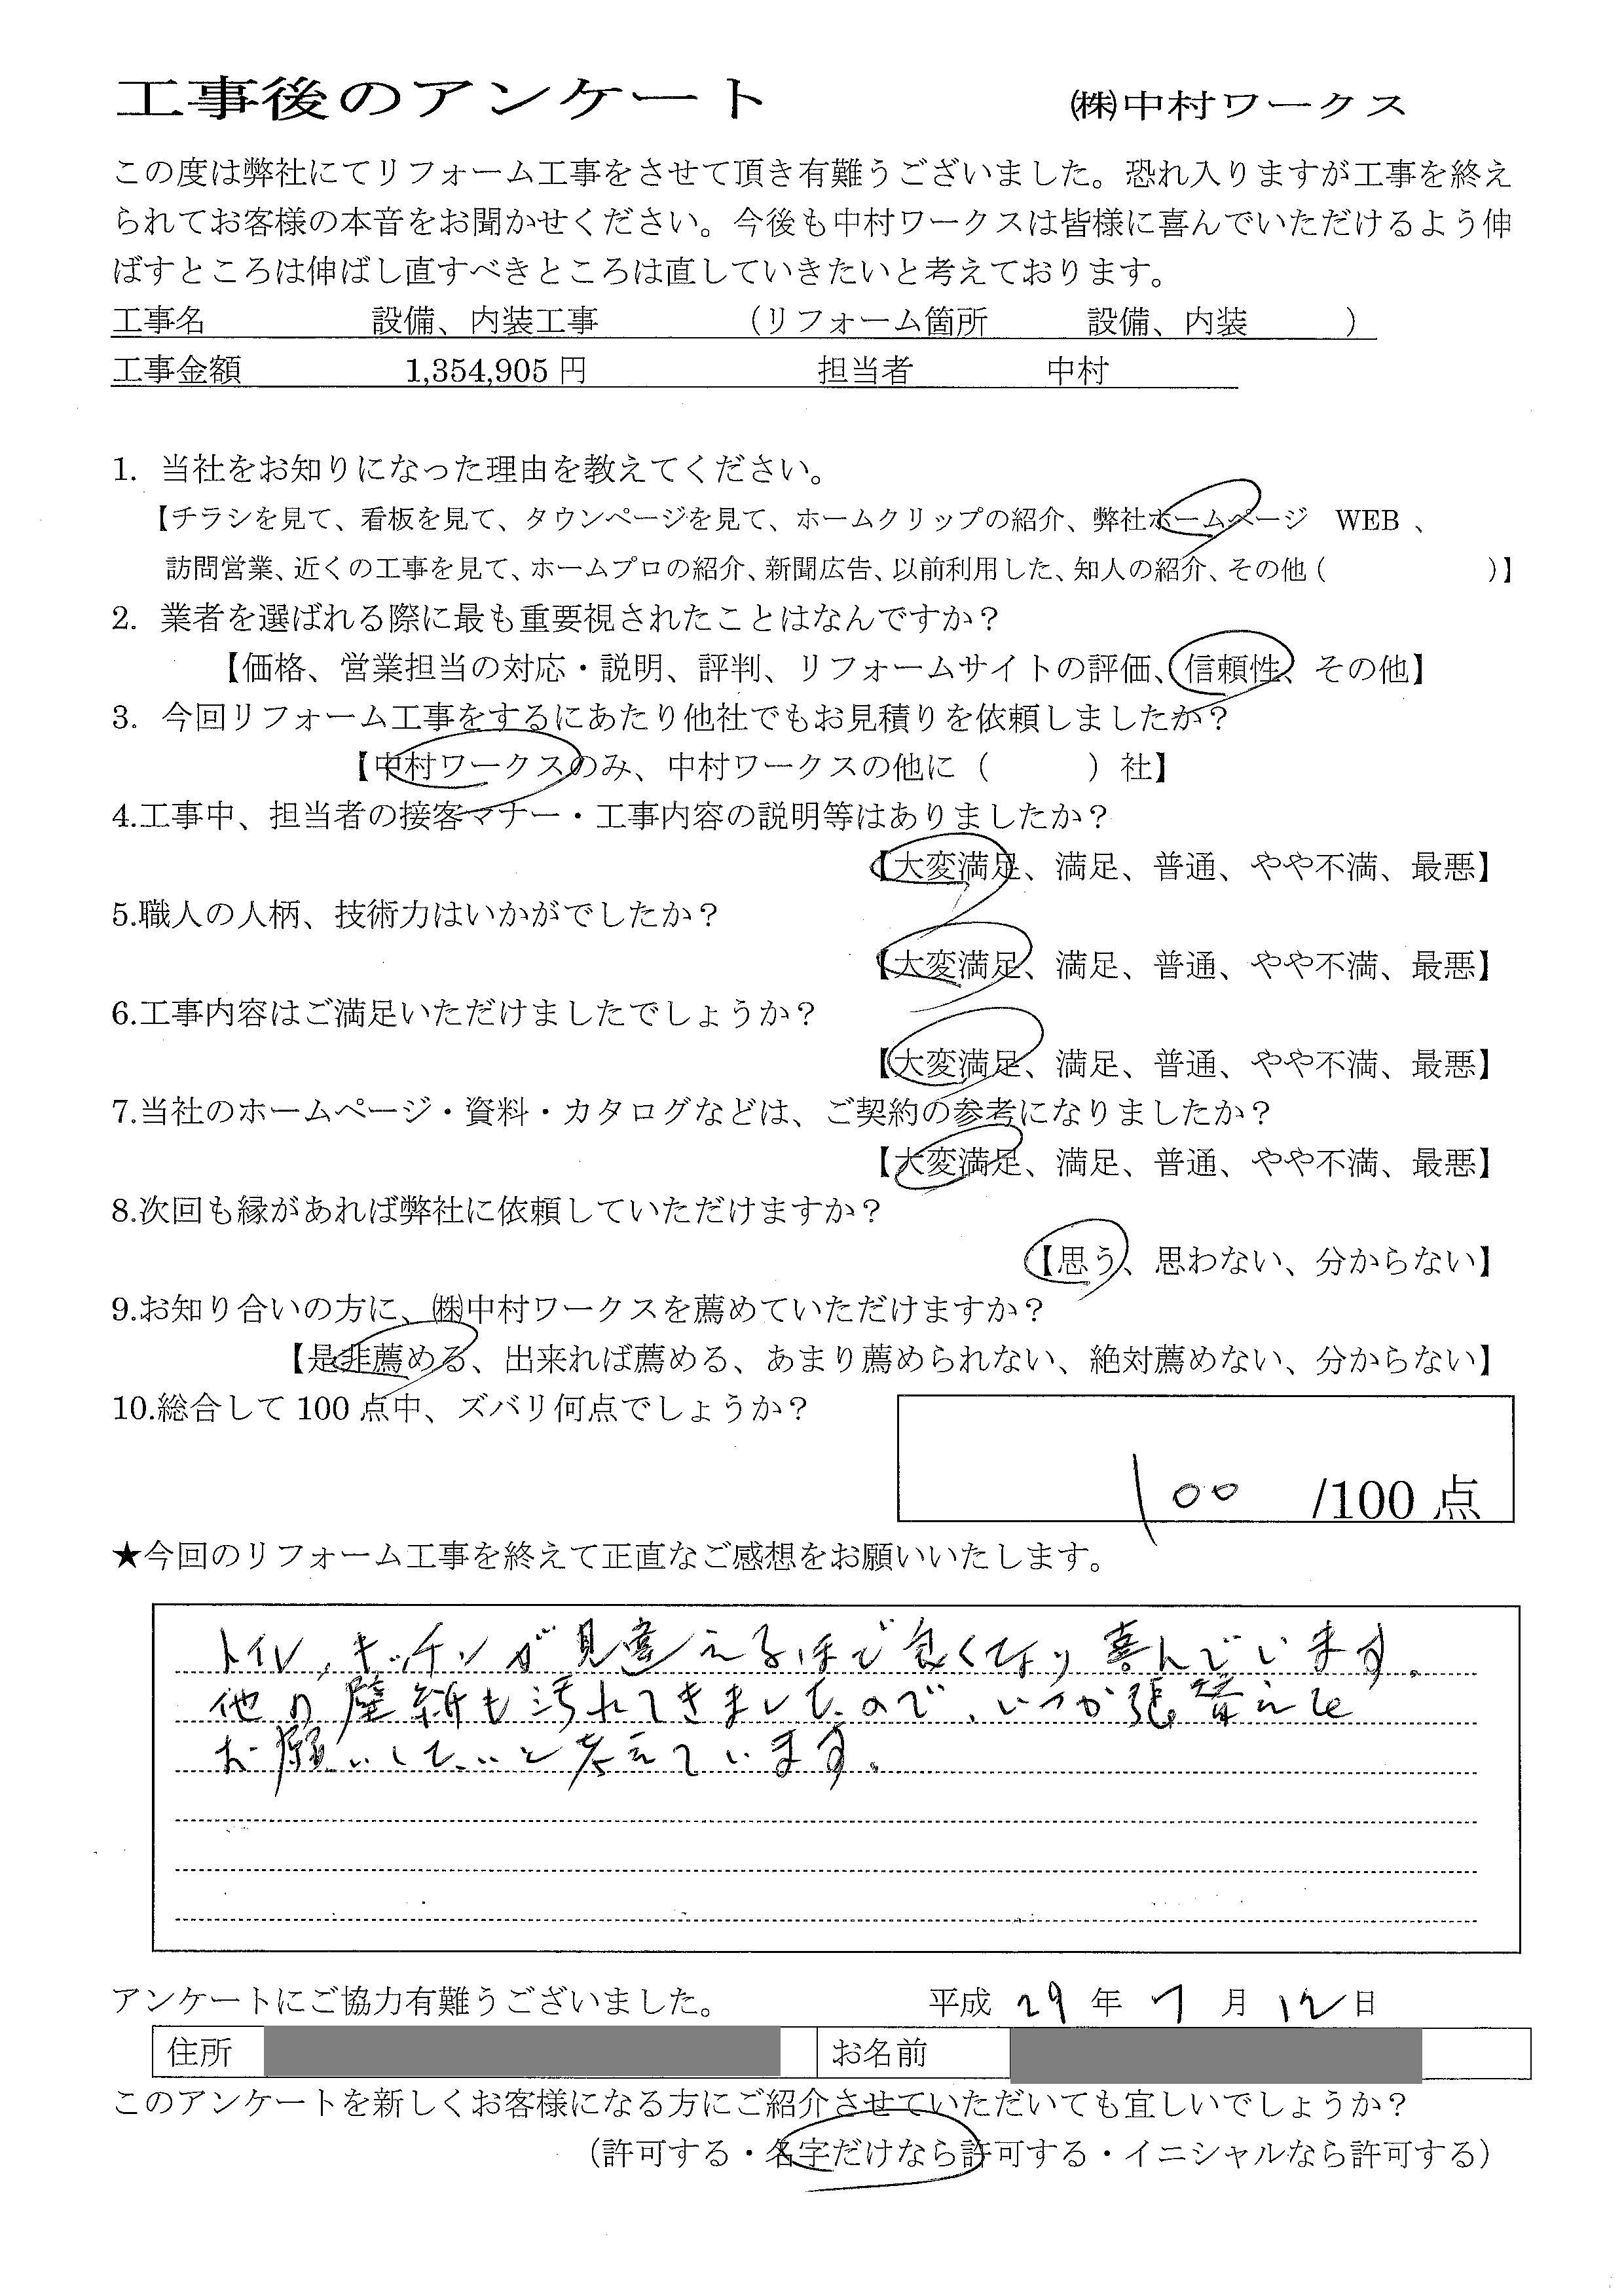 工事後のアンケート ㈱中村ワークス
この度は弊社にてリフォーム工事をさせて頂き有難うございました。恐れ入りますが工事を終え
られてお客様の本音をお聞かせください。今後も中村ワークスは皆様に喜んでいただけるよう伸
ばすところは伸ばし直すべきところは直していきたいと考えております。
工事名 設備、内装工事 （リフォーム箇所 設備、内装 ）
工事金額 1,354,905 円 担当者 中村
1. 当社をお知りになった理由を教えてください。
【チラシを見て、看板を見て、タウンページを見て、ホームクリップの紹介、弊社ホームページ WEB 、
訪問営業、近くの工事を見て、ホームプロの紹介、新聞広告、以前利用した、知人の紹介、その他（ ）】
2. 業者を選ばれる際に最も重要視されたことはなんですか？
【価格、営業担当の対応・説明、評判、リフォームサイトの評価、信頼性、その他】
3. 今回リフォーム工事をするにあたり他社でもお見積りを依頼しましたか？
【中村ワークスのみ、中村ワークスの他に（ ）社】
4.工事中、担当者の接客マナー・工事内容の説明等はありましたか？
【大変満足、満足、普通、やや不満、最悪】
5.職人の人柄、技術力はいかがでしたか？
【大変満足、満足、普通、やや不満、最悪】
6.工事内容はご満足いただけましたでしょうか？
【大変満足、満足、普通、やや不満、最悪】
7.当社のホームページ・資料・カタログなどは、ご契約の参考になりましたか？
【大変満足、満足、普通、やや不満、最悪】
8.次回も縁があれば弊社に依頼していただけますか？
【思う、思わない、分からない】
9.お知り合いの方に、㈱中村ワークスを薦めていただけますか？
【是非薦める、出来れば薦める、あまり薦められない、絶対薦めない、分からない】
10.総合して 100 点中、ズバリ何点でしょうか？
100 /100 点
★今回のリフォーム工事を終えて正直なご感想をお願いいたします。
トイレ、キッチンが見違えるほど良くなり喜んでいます。
他の壁紙も汚れてきましたので、いつか張替えを
お願いしたいと考えています。
アンケートにご協力有難うございました。 平成 29 年 7 月 12 日
住所 お名前
このアンケートを新しくお客様になる方にご紹介させていただいても宜しいでしょうか？
（許可する・名字だけなら許可する・イニシャルなら許可する）